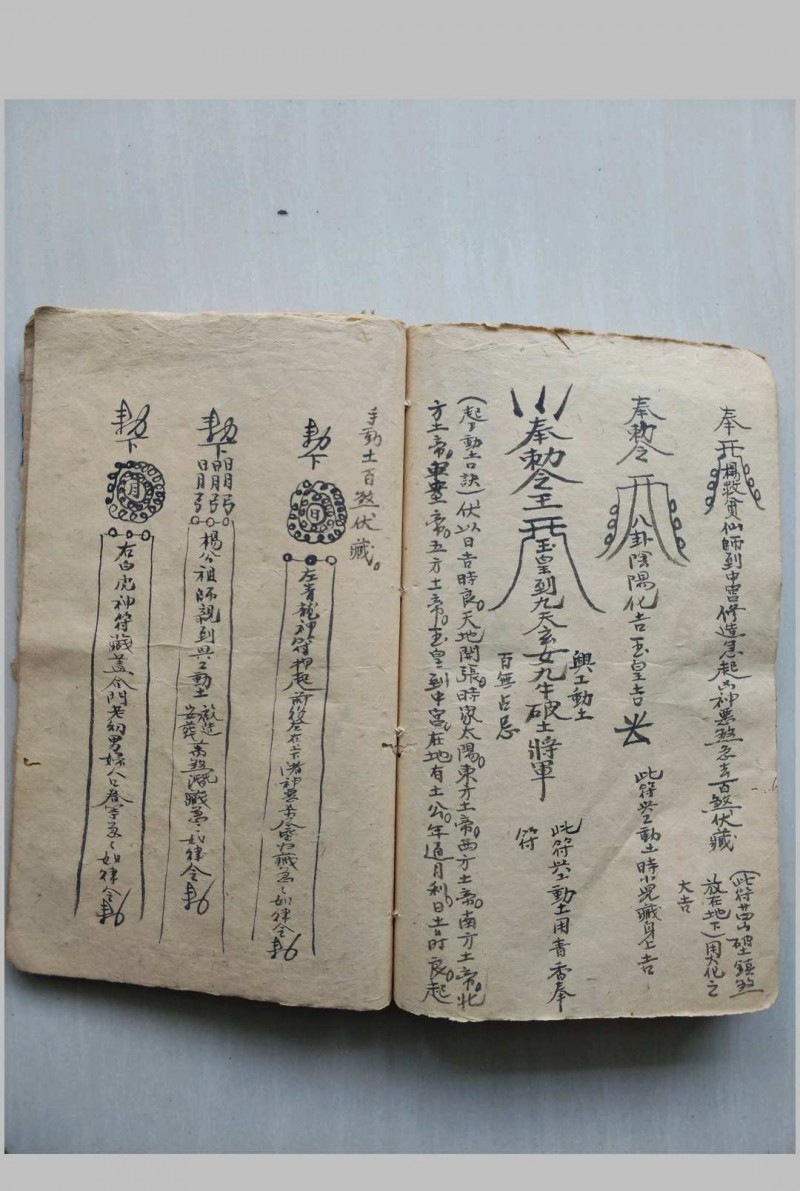 奉
楊救貧仙師到中宮修造急起凶神惡煞急去百煞伏藏
(此符廿四山破土鎮煞
放在地下)用火化之
大吉
奉勅令
八卦陰陽化吉玉皇吉
此符兴工動土時小児藏身上吉
奉勅令王
玉皇到九天玄女九牛破土將軍
興工動土
百無占忌
此符兴工動土用青香奉
符
(起工動土口訣)伏以日吉時良。天地開張。時家太陽。東方土帝。西方土帝。南方土帝。北
方土帝。五方土帝。玉皇到中宮。在地有土公。年通月利。日吉時良。起
手動土百煞伏藏。
勅下
日
左青龍神符押起前後左右
如律令
勅下
晶
楊公祖師親到兴工動土
安葬
如律令
勅下
月
右白虎神符藏盖合門老幼男婦人口
如律令